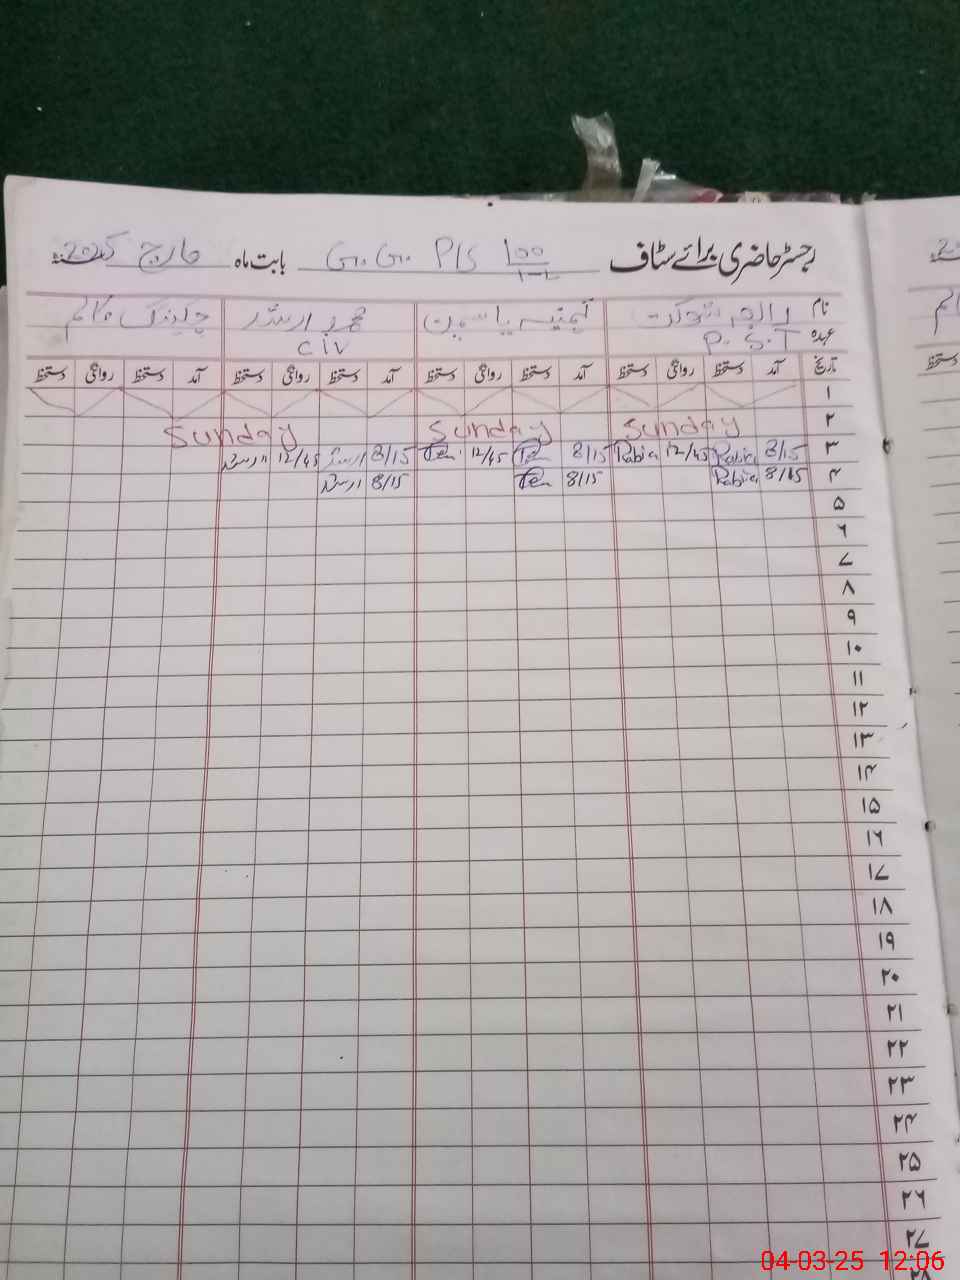 رجسٹر حاضری برائے سٹاف G.G. P/S 100 بابت ماہ مارچ 2025
نام رابعہ شوکت یاسمین محمد ارشد چیکنگ کالم
عہدہ P.S.T C/V
تاریخ آمد دستخط روانگی دستخط آمد دستخط روانگی دستخط آمد دستخط روانگی دستخط آمد دستخط روانگی دستخط
۱
۲ Sunday Sunday Sunday
۳ 8/15 Rabia 12/45 Rabia 8/15 12/45 8/15 ارشد 12/45 ارشد
۴ 8/15 Rabia 8/15 8/15 ارشد
۵
۶
۷
۸
۹
۱۰
۱۱
۱۲
۱۳
۱۴
۱۵
۱۶
۱۷
۱۸
۱۹
۲۰
۲۱
۲۲
۲۳
۲۴
۲۵
۲۶
۲۷
۲۸
دستخط
04-03-25 12:06